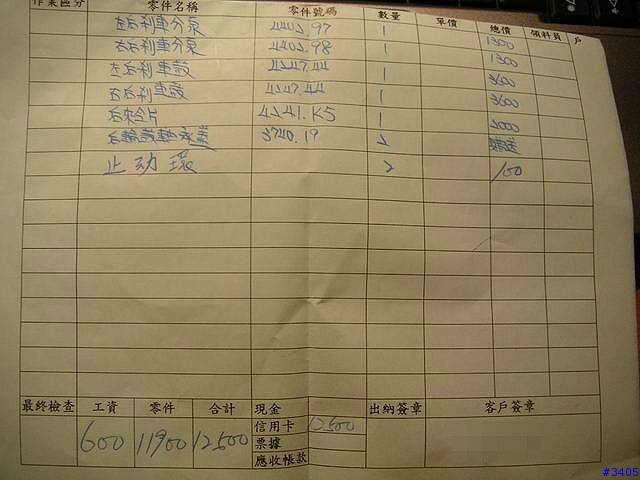 作業區分 零件名稱 零件號碼 數量 單價 總價 領料員 戶
左右利車分泵 4402.97 1 1300
右右利車分泵 4402.98 1 1300
左右利車鼓 4247.44 1 3600
右右利車鼓 4247.44 1 3600
右來令片 4241.K5 1 2000
3740.19 2
止动環 2 100
最終檢查 工資 零件 合計 現金 出納簽章 客戶簽章
600 11900 12500 信用卡 12500
票據
應收帳款
#3405